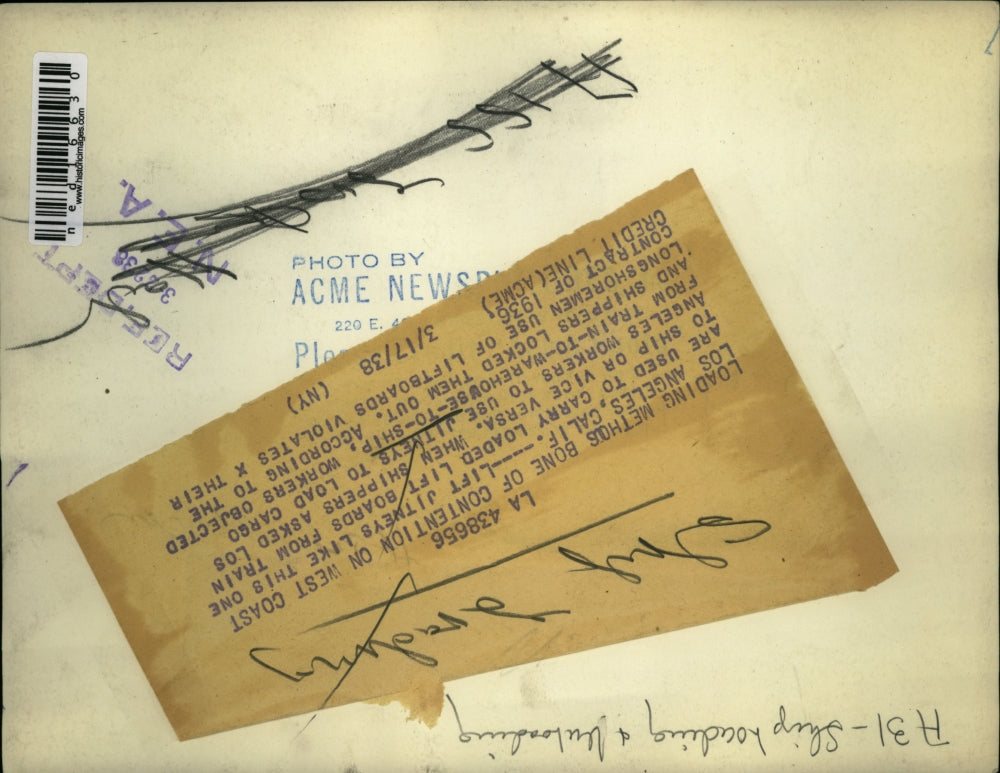 www.historicimages.com
ned16630
N.E.A.
PHOTO BY
ACME NEWSP
220 E. 4
Ple
Ship
Loading
LA 438656
LOADING METHODS BONE OF CONTENTION ON WEST COAST
LOS ANGELES, CALIF.----LIFT JITNEYS LIKE THIS ONE
ARE USED TO CARRY LOADED LIFT BOARDS FROM TRAIN
TO SHIP OR VICE VERSA. WHEN SHIPPERS ASKED LOS
ANGELES WORKERS TO USE JITNEYS TO LOAD CARGO
FROM TRAIN-TO-WAREHOUSE-TO-SHIP, WORKERS OBJECTED
AND SHIPPERS LOCKED THEM OUT. ACCORDING TO THE
LONGSHOREMEN USE OF LIFTBOARDS X VIOLATES THEIR
CONTRACT OF 1936
CREDIT LINE(ACME) 3/17/38 (NY)
A 31 - Ship Loading & Unloading